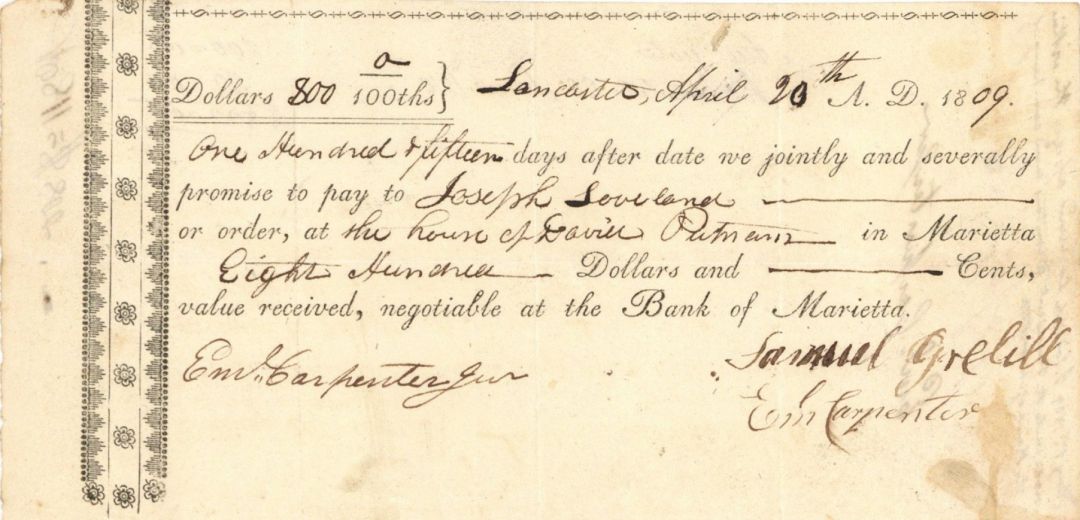 Dollars 800 0/100ths} Lancaster, April 20th A. D. 1809.
One Hundred & fifteen days after date we jointly and severally
promise to pay to Joseph Loveland
or order, at the house of David Putnam in Marietta
Eight Hundred Dollars and Cents,
value received, negotiable at the Bank of Marietta.
Samuel
Eml. Carpenter Jun
Em Carpenter